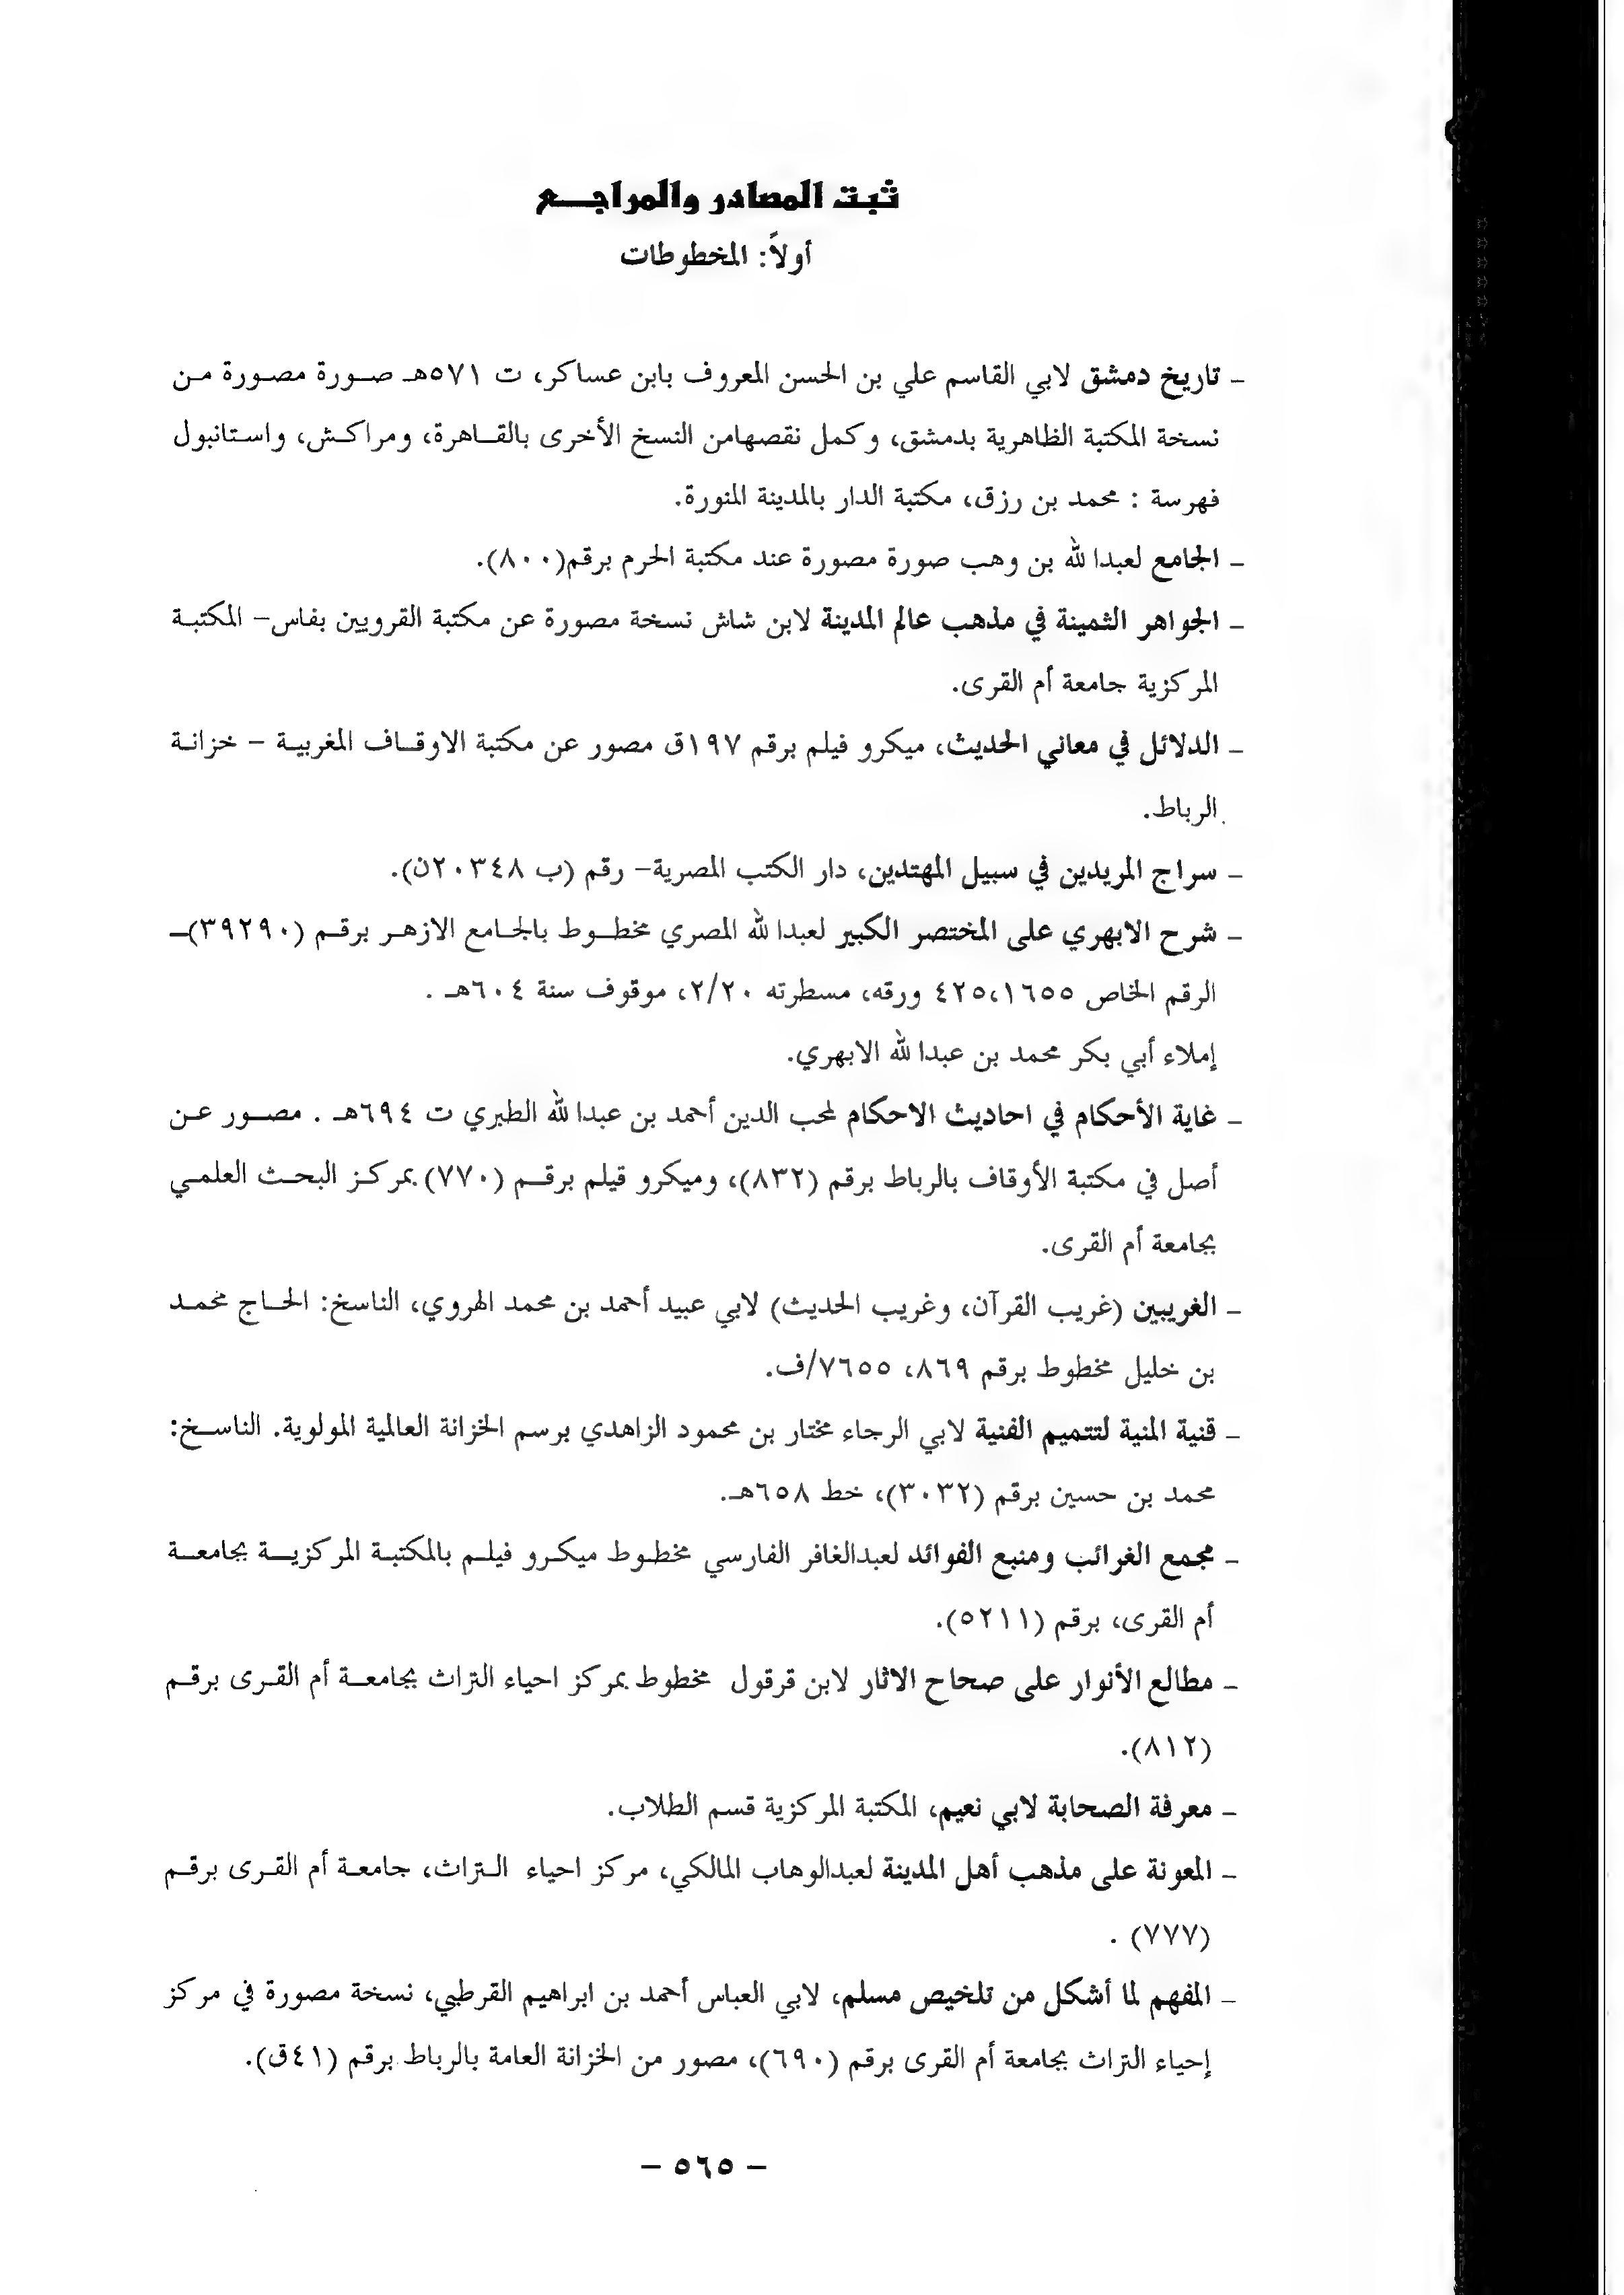 ثبت المصادر والمراجع
أولاً: المخطوطات
– تاريخ دمشق لابي القاسم علي بن الحسن المعروف بابن عساكر، ت ٥٧١هـ صورة مصورة من
نسخة المكتبة الظاهرية بدمشق، وكمل نقصهامن النسخ الأخرى بالقاهرة، ومراكش، واستانبول
فهرسة : محمد بن رزق، مكتبة الدار بالمدينة المنورة.
– الجامع لعبدا لله بن وهب صورة مصورة عند مكتبة الحرم برقم(٨٠٠).
– الجواهر الثمينة في مذهب عالم المدينة لابن شاش نسخة مصورة عن مكتبة القرويين بفاس– المكتبة
المركزية جامعة أم القرى.
– الدلائل في معاني الحديث، ميكرو فيلم برقم ١٩٧ق مصور عن مكتبة الاوقاف المغربية – خزانة
الرباط.
– سراج المريدين في سبيل المهتدين، دار الكتب المصرية– رقم (ب ٢٠٣٤٨ن).
– شرح الابهري على المختصر الكبير لعبدا لله المصري مخطوط بالجامع الازهر برقم (٣٩٢٩٠)–
الرقم الخاص ٤٢٥،١٦٥٥ ورقه، مسطرته ٢/٢٠، موقوف سنة ٦٠٤هـ .
إملاء أبي بكر محمد بن عبدا لله الابهري.
– غاية الأحكام في احاديث الاحكام لمحب الدين أحمد بن عبدا لله الطبري ت ٦٩٤هـ . مصور عن
أصل في مكتبة الأوقاف بالرباط برقم (٨٣٢)، وميكرو قيلم برقم (٧٧٠) بمركز البحث العلمي
بجامعة أم القرى.
– الغريبين (غريب القرآن، وغريب الحديث) لابي عبيد أحمد بن محمد الهروي، الناسخ: الحاج محمد
بن خليل مخطوط برقم ٨٦٩، ٧٦٥٥/ف.
– قنية المنية لتتميم الفنية لابي الرجاء مختار بن محمود الزاهدي برسم الخزانة العالمية المولوية. الناسخ:
محمد بن حسين برقم (٣٠٣٢)، خط ٦٥٨هـ.
– مجمع الغرائب ومنبع الفوائد لعبدالغافر الفارسي مخطوط ميكرو فيلم بالمكتبة المركزية بجامعة
أم القرى، برقم (٥٢١١).
– مطالع الأنوار على صحاح الاثار لابن قرقول مخطوط بمركز احياء التراث بجامعة أم القرى برقم
(٨١٢).
– معرفة الصحابة لابي نعيم، المكتبة المركزية قسم الطلاب.
– المعونة على مذهب أهل المدينة لعبدالوهاب المالكي، مركز احياء التراث، جامعة أم القرى برقم
(٧٧٧) .
– المفهم لما أشكل من تلخيص مسلم، لابي العباس أحمد بن ابراهيم القرطبي، نسخة مصورة في مركز
إحياء التراث بجامعة أم القرى برقم (٦٩٠)، مصور من الخزانة العامة بالرباط برقم (٤١ق).
– ٥٦٥ –